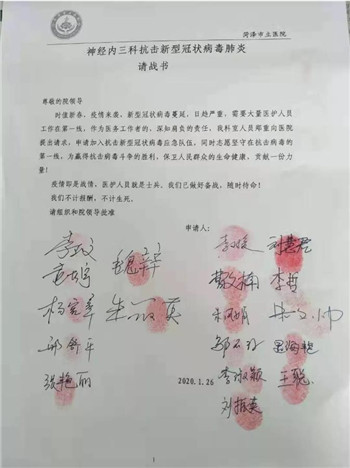 菏泽市立医院
神经内三科抗击新型冠状病毒肺炎
请战书
尊敬的院领导
时值新春，疫情来袭，新型冠状病毒蔓延，日趋严重，需要大量医护人员
工作在第一线，作为医务工作者的，深知肩负的责任，我科室人员郑重向医院
提出请求，申请加入抗击新型冠状病毒应急队伍，同时志愿坚守在抗击病毒的
第一线，为赢得抗击病毒斗争的胜利，保卫人民群众的生命健康，贡献一份力
量！
疫情即是战情，医护人员就是士兵。我们已做好备战，随时待命！
我们不计报酬，不计生死。
请组织和院领导批准
申请人：
刘慧君
李哲
杨宪章
郭舒平
张艳丽
李淑敏
王聪
刘振英
2020.1.26
1